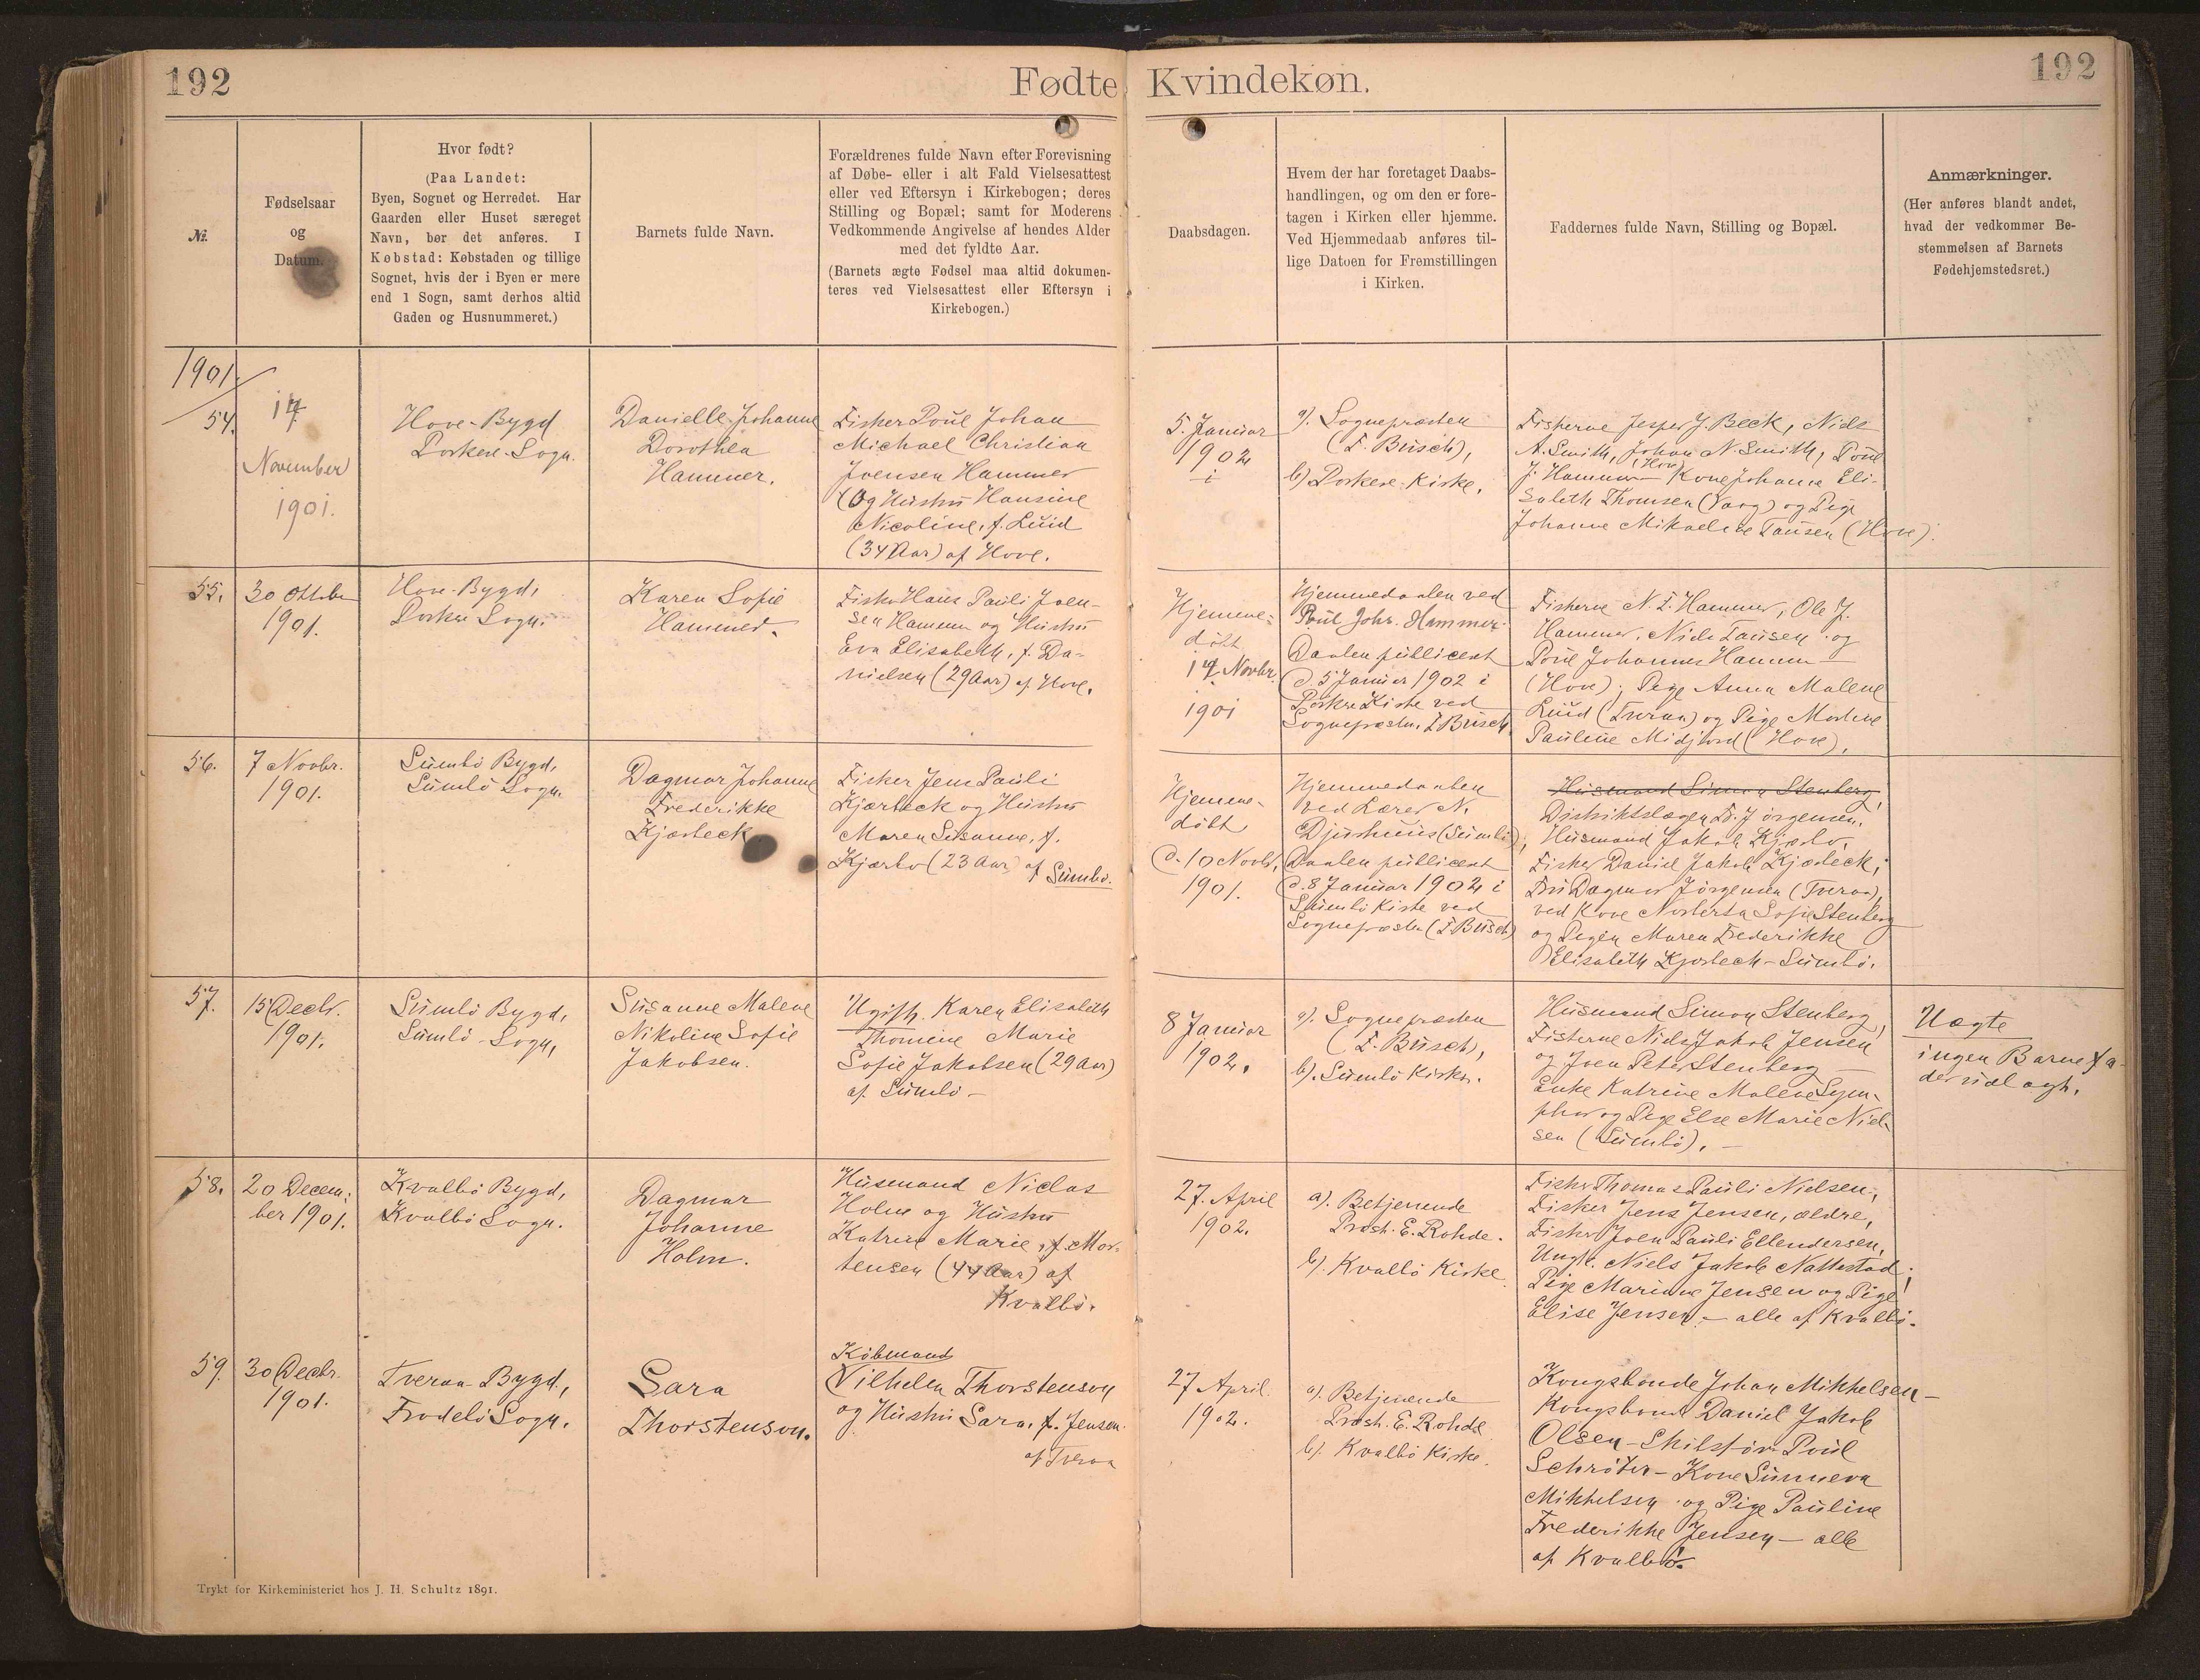 192
Fødte Kvindekøn.
192
№.
Fødselsaar
og
Datum.
Hvor født?
(Paa Landet:
Byen, Sognet og Herredet. Har
Gaarden eller Huset særeget
Navn, bør det anføres. I
Købstad: Købstaden og tillige
Sognet, hvis der i Byen er mere
end 1 Sogn, samt derhos altid
Gaden og Husnummeret.)
Barnets fulde Navn.
Forældrenes fulde Navn efter Forevisning
af Døbe- eller i alt Fald Vielsesattest
eller ved Eftersyn i Kirkebogen; deres
Stilling og Bopæl; samt for Moderens
Vedkommende Angivelse af hendes Alder
med det fyldte Aar.
(Barnets ægte Fødsel maa altid dokumen-
teres ved Vielsesattest eller Eftersyn i
Kirkebogen.)
Daabsdagen.
Hvem der har foretaget Daabs-
handlingen, og om den er fore-
tagen i Kirken eller hjemme.
Ved Hjemmedaab anføres til-
lige Datoen for Fremstillingen
i Kirken.
Faddernes fulde Navn, Stilling og Bopæl.
Anmærkninger.
(Her anføres blandt andet,
hvad der vedkommer Be-
stemmelsen af Barnets
Fødehjemstedsret.)
1901.
54.
17
November
1901.
Hove-Bygd
Porkere-Sogn.
Danielle Johanne
Dorothea
Hammer.
Fisker Poul Johan
Michael Christian
Joensen Hammer
(og Hustru Hansine
Nicoline, f. Luid
(34 Aar) af Hove.
5. Januar
1902
a). Sognepræsten
(F. Busch),
b) Porkere-Kirke.
Fiskerne Jesper J. Beck, Niels
A. Smith, Johan N. Smith, Poul
J. Hammer (Hove) Kone Johanne Eli-
sabeth Thomsen (Vaag) og Pige
Johanne Mikaeline Tausen (Hove).
55.
30 Oktober
1901.
Hove-Bygd,
Porkere Sogn.
Karen Sofie
Hammer.
Fisker Hans Pauli Joen-
sen Hammer og Hustru
Eva Elisabeth, f. Da-
nielsen (29 Aar) af Hove.
Hjemme-
døbt
17 Novbr.
1901
Hjemmedaaben ved
Poul Johs. Hammer.
Daaben publiceret
d. 5 Januar 1902 i
Porkere Kirke ved
Sognepræsten F. Busch.
Fiskerne N. F. Hammer, Ole J.
Hammer, Niels Tausen og
Poul Johannes Hammer
(Hove); Pige Anna Malene
Luid (Tveraa) og Pige Modine
Pauline Midjord (Hove).
56.
7 Novbr.
1901.
Sumbö Bygd,
Sumbö Sogn.
Dagmar Johanne
Frederikke
Kjærbeck
Fisker Jens Pauli
Kjærbeck og Hustru
Maren Susanne, f.
Kjærbo (23 Aar) af Sumbö.
Hjemme-
døbt
d. 10 Novbr,
1901.
Hjemmedaaben
ved Lærer N.
Djurhuus (Sumbö),
Daaben publiceret
d. 8 Januar 1902 i
Sumbö Kirke ved
Sognepræsten (F. Busch)
Husmand Simon Stenberg,
Distriktslægen Fr. Jörgensen,
Husmand Jakob Kjærbo,
Fisker Daniel Jakob Kjærbeck;
Fru Dagmar Jörgensen (Tveraa),
ved Kone Norberta Sofie Stenberg
og Pigen Maren Frederikke
Elisabeth Kjærbeck - Sumbö.
57.
15 Decbr.
1901.
Sumbö Bygd,
Sumbö-Sogn,
Susanne Malene
Nikoline Sofie
Jakobsen.
Ugift. Karen Elisabeth
Thomine Marie
Sofie Jakobsen (29 Aar)
af Sumbö -
8 Januar
1902.
a). Sognepræsten
(F. Busch),
b). Sumbö Kirke.
Husmand Simon Stenberg,
Fiskerne Niels Jakob Jensen
og Joen Peter Stenberg -
Enke Katrine Malene Sym-
phor og Pige Else Marie Niel-
sen (Sumbö). -
Uægte
ingen Barnefa-
der udlagt.
58.
20 Decem-
ber 1901.
Kvalbö Bygd,
Kvalbö Sogn.
Dagmar
Johanne
Holm.
Husmand Niclas
Holm og Hustru
Katrine Marie, f. Mor-
tensen (44 Aar) af
Kvalbö.
27. April
1902.
a). Betjenende
Prost. E. Rohde.
b). Kvalbö Kirke.
Fisker Thomas Pauli Nielsen,
Fisker Jens Jensen, ældre,
Fisker Joen Pauli Ellendersen,
Ungk. Niels Jakob Nattestad;
Pige Marianne Jensen og Pige
Elise Jensen - alle af Kvalbö.
59.
30 Decbr.
1901.
Tveraa-Bygd,
Frodebö Sogn.
Sara
Thorstenson.
Købmand
Vilhelm Thorstenson
og Hustru Sara, f. Jensen
af Tveraa
27 April.
1902.
a). Betjenende
Prost. E. Rohde
b). Kvalbö Kirke.
Kongsbonde Johan Mikkelsen -
Kongsbonde Daniel Jakob
Olsen - Skibsför. Poul
Schröter - Kone Sunneva
Mikkelsen og Pige Pauline
Frederikke Jensen - alle
af Kvalbö.
Trykt for Kirkeministeriet hos J. H. Schultz 1891.